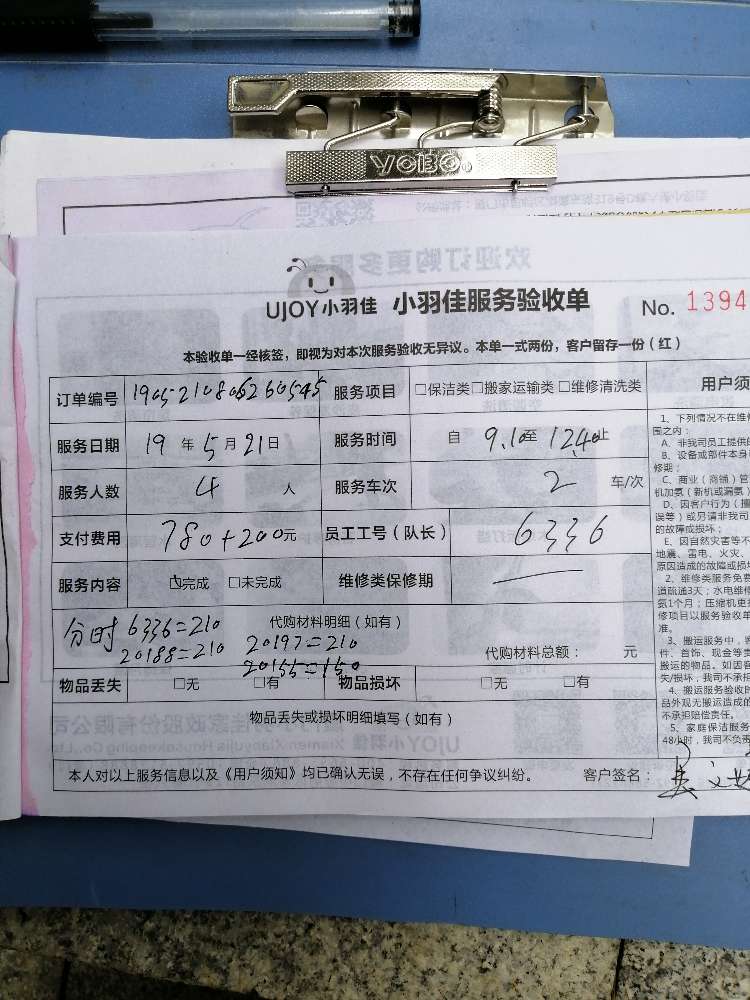 YOBO
欢迎订购更多服务
UJOY小羽佳 小羽佳服务验收单 No. 1394
本验收单一经核签，即视为对本次服务验收无异议。本单一式两份，客户留存一份（红）
订单编号 1905210806260545 服务项目 □保洁类□搬家运输类□维修清洗类
服务日期 19 年 5 月 21 日 服务时间 自 9.10至 12.40止
服务人数 4 人 服务车次 2 车/次
支付费用 780+200元 员工工号（队长） 6336
服务内容 □完成 □未完成 维修类保修期 —
分时 6336=210 代购材料明细（如有）
20188=210 20197=210 代购材料总额： 元
20155=150
物品丢失 □无 □有 物品损坏 □无 □有
物品丢失或损坏明细填写（如有）
本人对以上服务信息以及《用户须知》均已确认无误，不存在任何争议纠纷。 客户签名：
用户须
1、下列情况不在维
围之内：
A、非我司员工提供的
B、设备或部件本身
修期；
C、商业（商铺）管
机加氨（新机或漏氨）
D、因客户行为（擅
误等）或另请非我司
的故障或损坏；
E、因自然灾害等不
地震、雷电、火灾、
原因造成的故障或损坏
2、维修类服务免费
道疏通3天；水电维修
氨1个月；压缩机更换
修项目以服务验收单
准。
3、搬运服务中，贵
件、首饰、现金等贵
搬运的物品。如因
失/损坏，我司不承担
4、搬运服务验收时
品外观无搬运造成的
不承担赔偿责任。
5、家庭保洁服务
48小时，我司不负责